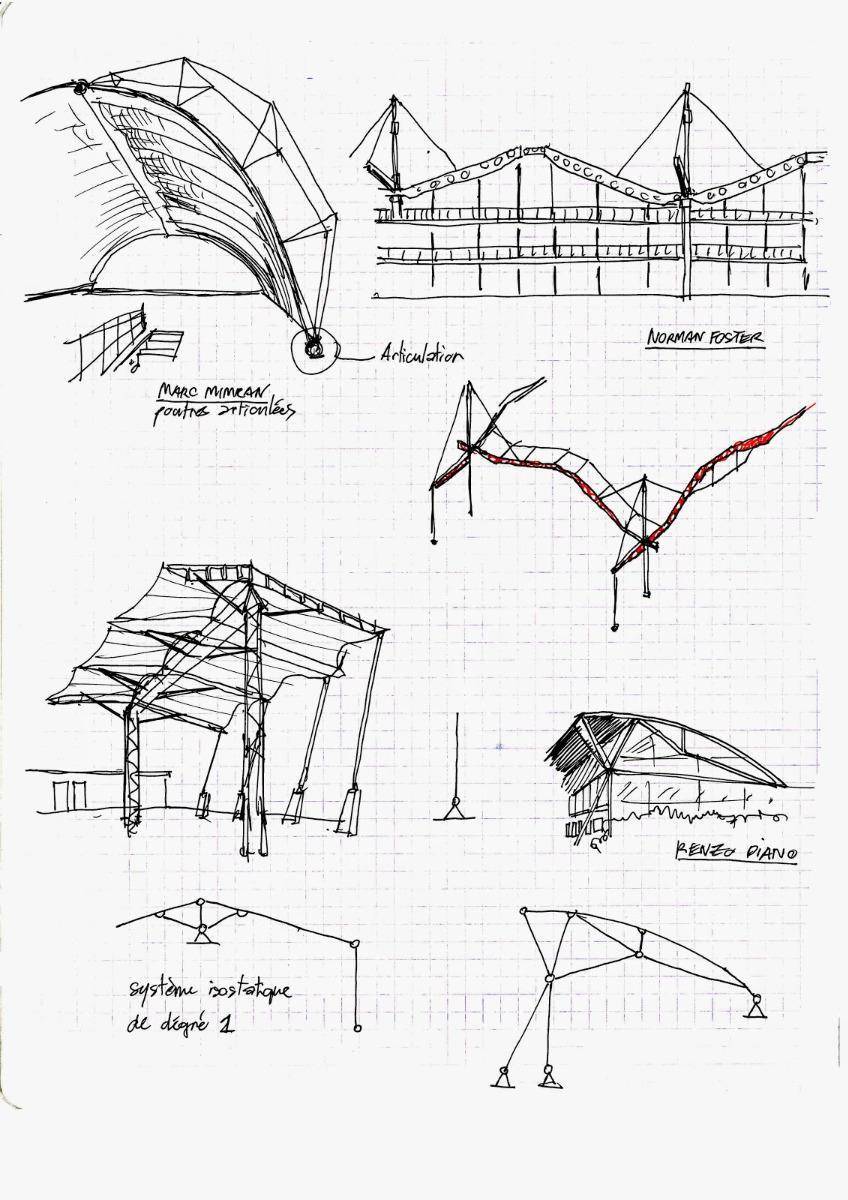 NORMAN FOSTER
Articulation
MARC MIMRAN
poutres articulées
RENZO PIANO
système isostatique
de dégré 1